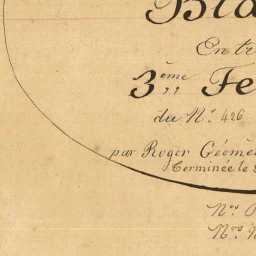 Bla
Entr
3ème Fe
du No. 426
par Roger Géomè
Terminée le
Nos
Nos